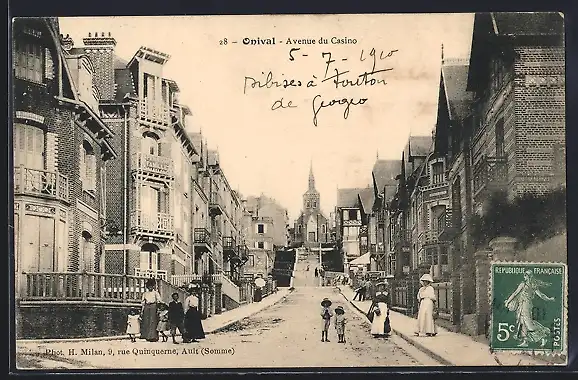 28 - Onival - Avenue du Casino
5-7-1910
Bibises à Fonton
de Georges
Phot. H. Milan, 9, rue Quinquerne, Ault (Somme)
REPUBLIQUE FRANÇAISE
5c
POSTES